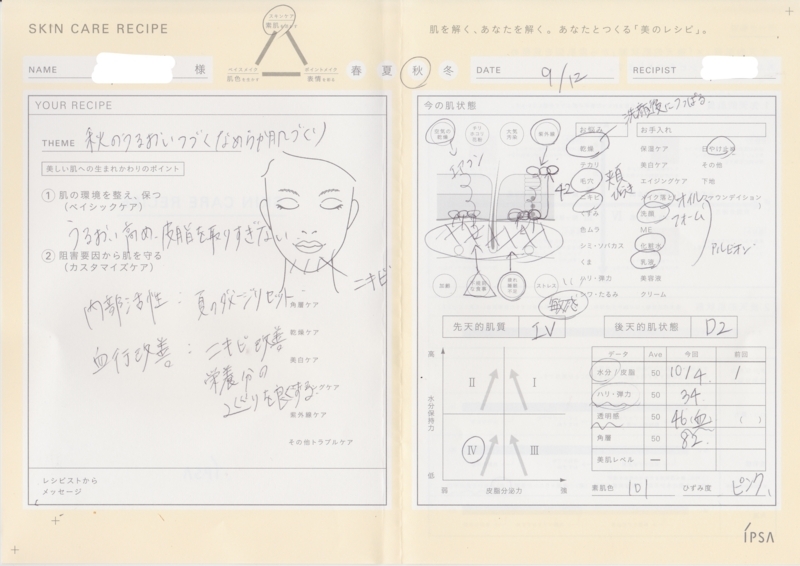 SKIN CARE RECIPE
NAME 様
スキンケア
素肌
ベイスメイク
肌色
ポイントメイク
表情
春 夏 秋 冬
肌を解く、あなたを解く。あなたとつくる「美のレシピ」。
DATE 9/12
RECIPIST
YOUR RECIPE
THEME 秋のうるおいつづくなめらか肌づくり
美しい肌への生まれかわりのポイント
① 肌の環境を整え、保つ
(ベイシックケア)
うるおい高め、皮脂を取りすぎない
② 阻害要因から肌を守る
(カスタマイズケア)
ニキビ
内部活性:夏のダメージリセット
角層ケア
血行改善:ニキビ改善
乾燥ケア
美白ケア
栄養分の
めぐりを良くする
紫外線ケア
その他トラブルケア
レシピストから
メッセージ
今の肌状態
洗顔後につっぱる
お悩み
お手入れ
空気の乾燥
大気汚染
紫外線
エアコン
乾燥
保湿ケア
日やけ止め
テカリ
美白ケア
その他
42
毛穴
頬
エイジングケア
下地
ニキビ
メイク落とし
ファウンデイション
くすみ
洗顔
オイル
フォーム
色ムラ
ME
シミ・ソバカス
化粧水
アルビオン
くま
乳液
ハリ・弾力
美容液
シワ・たるみ
クリーム
ストレス
敏感
先天的肌質 IV
後天的肌状態 D2
高
水分保持力
低
II
I
IV
III
弱 皮脂分泌力 強
データ Ave 今回 前回
水分/皮脂 50 10/4 /
ハリ・弾力 50 34
透明感 50 46(血) ( )
角層 50 82
美肌レベル ー
素肌色 101 ひずみ度 ピンク
IPSA